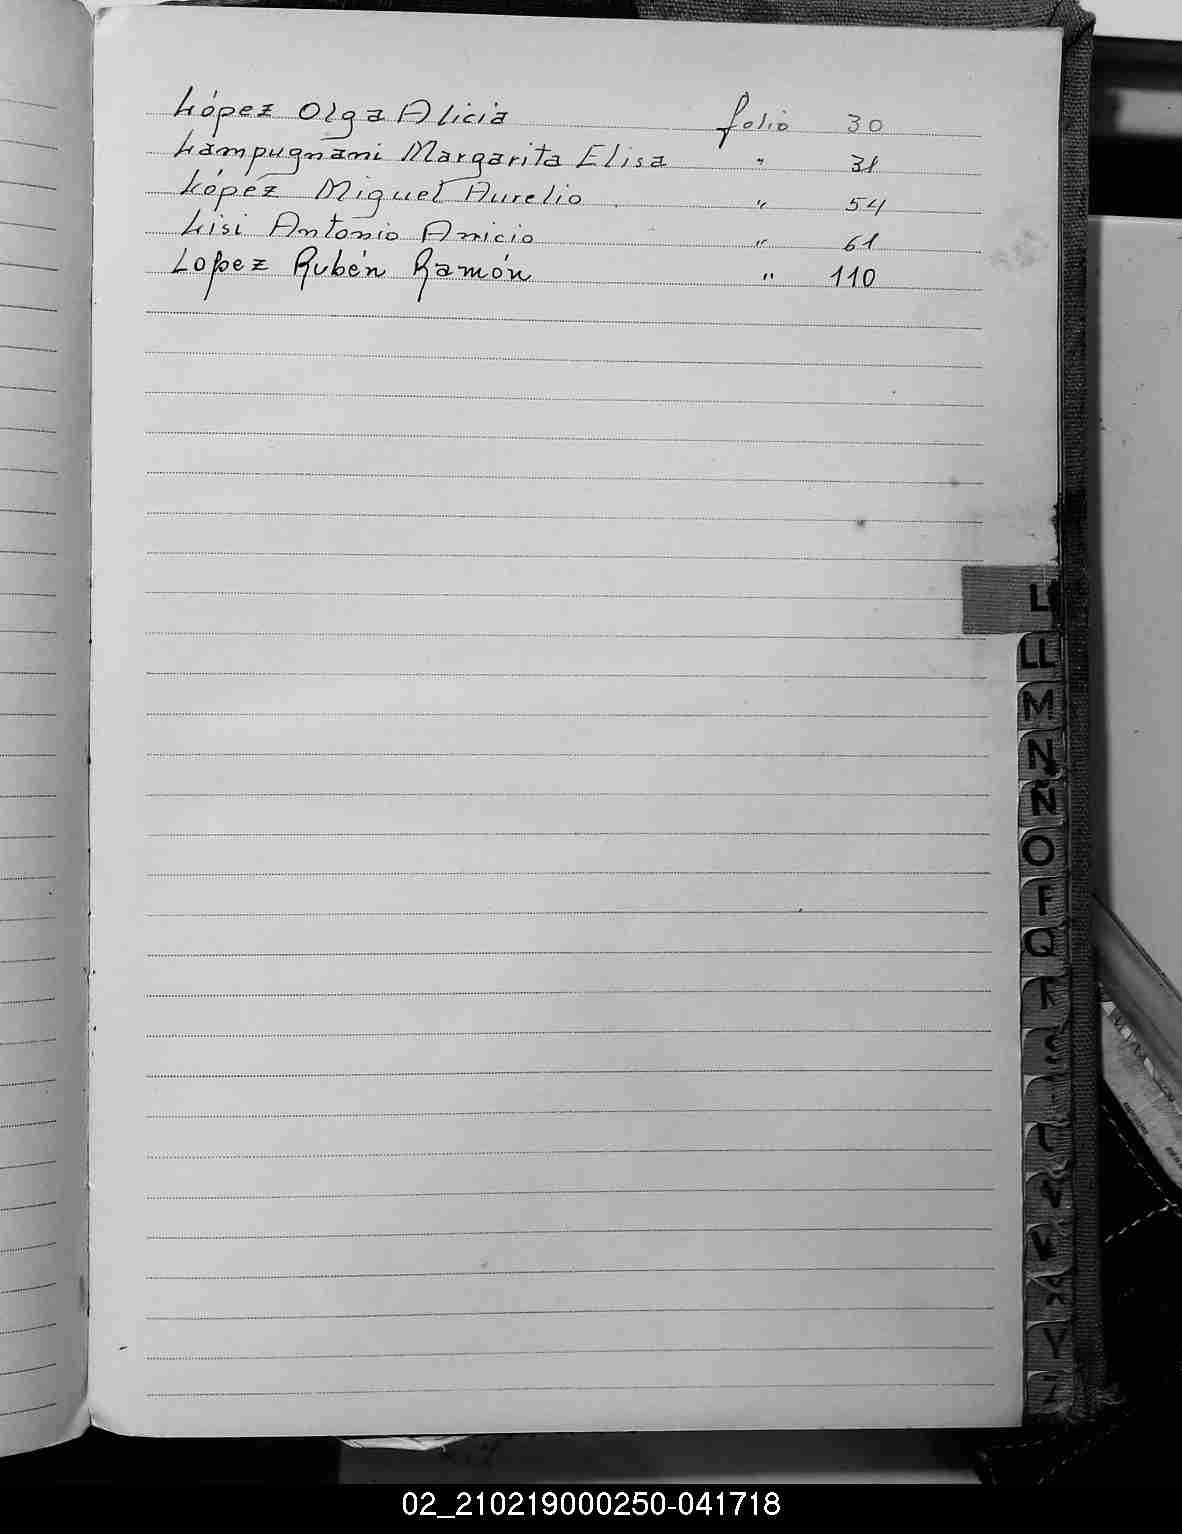 López Olga Alicia folio 30
Lampugnani Margarita Elisa " 31
López Miguel Aurelio " 54
Lisi Antonio Anicio " 61
Lopez Rubén Ramón " 110
L
LL
M
N
N
O
P
Q
R
S
T
V
X
Y
Z
02_210219000250-041718